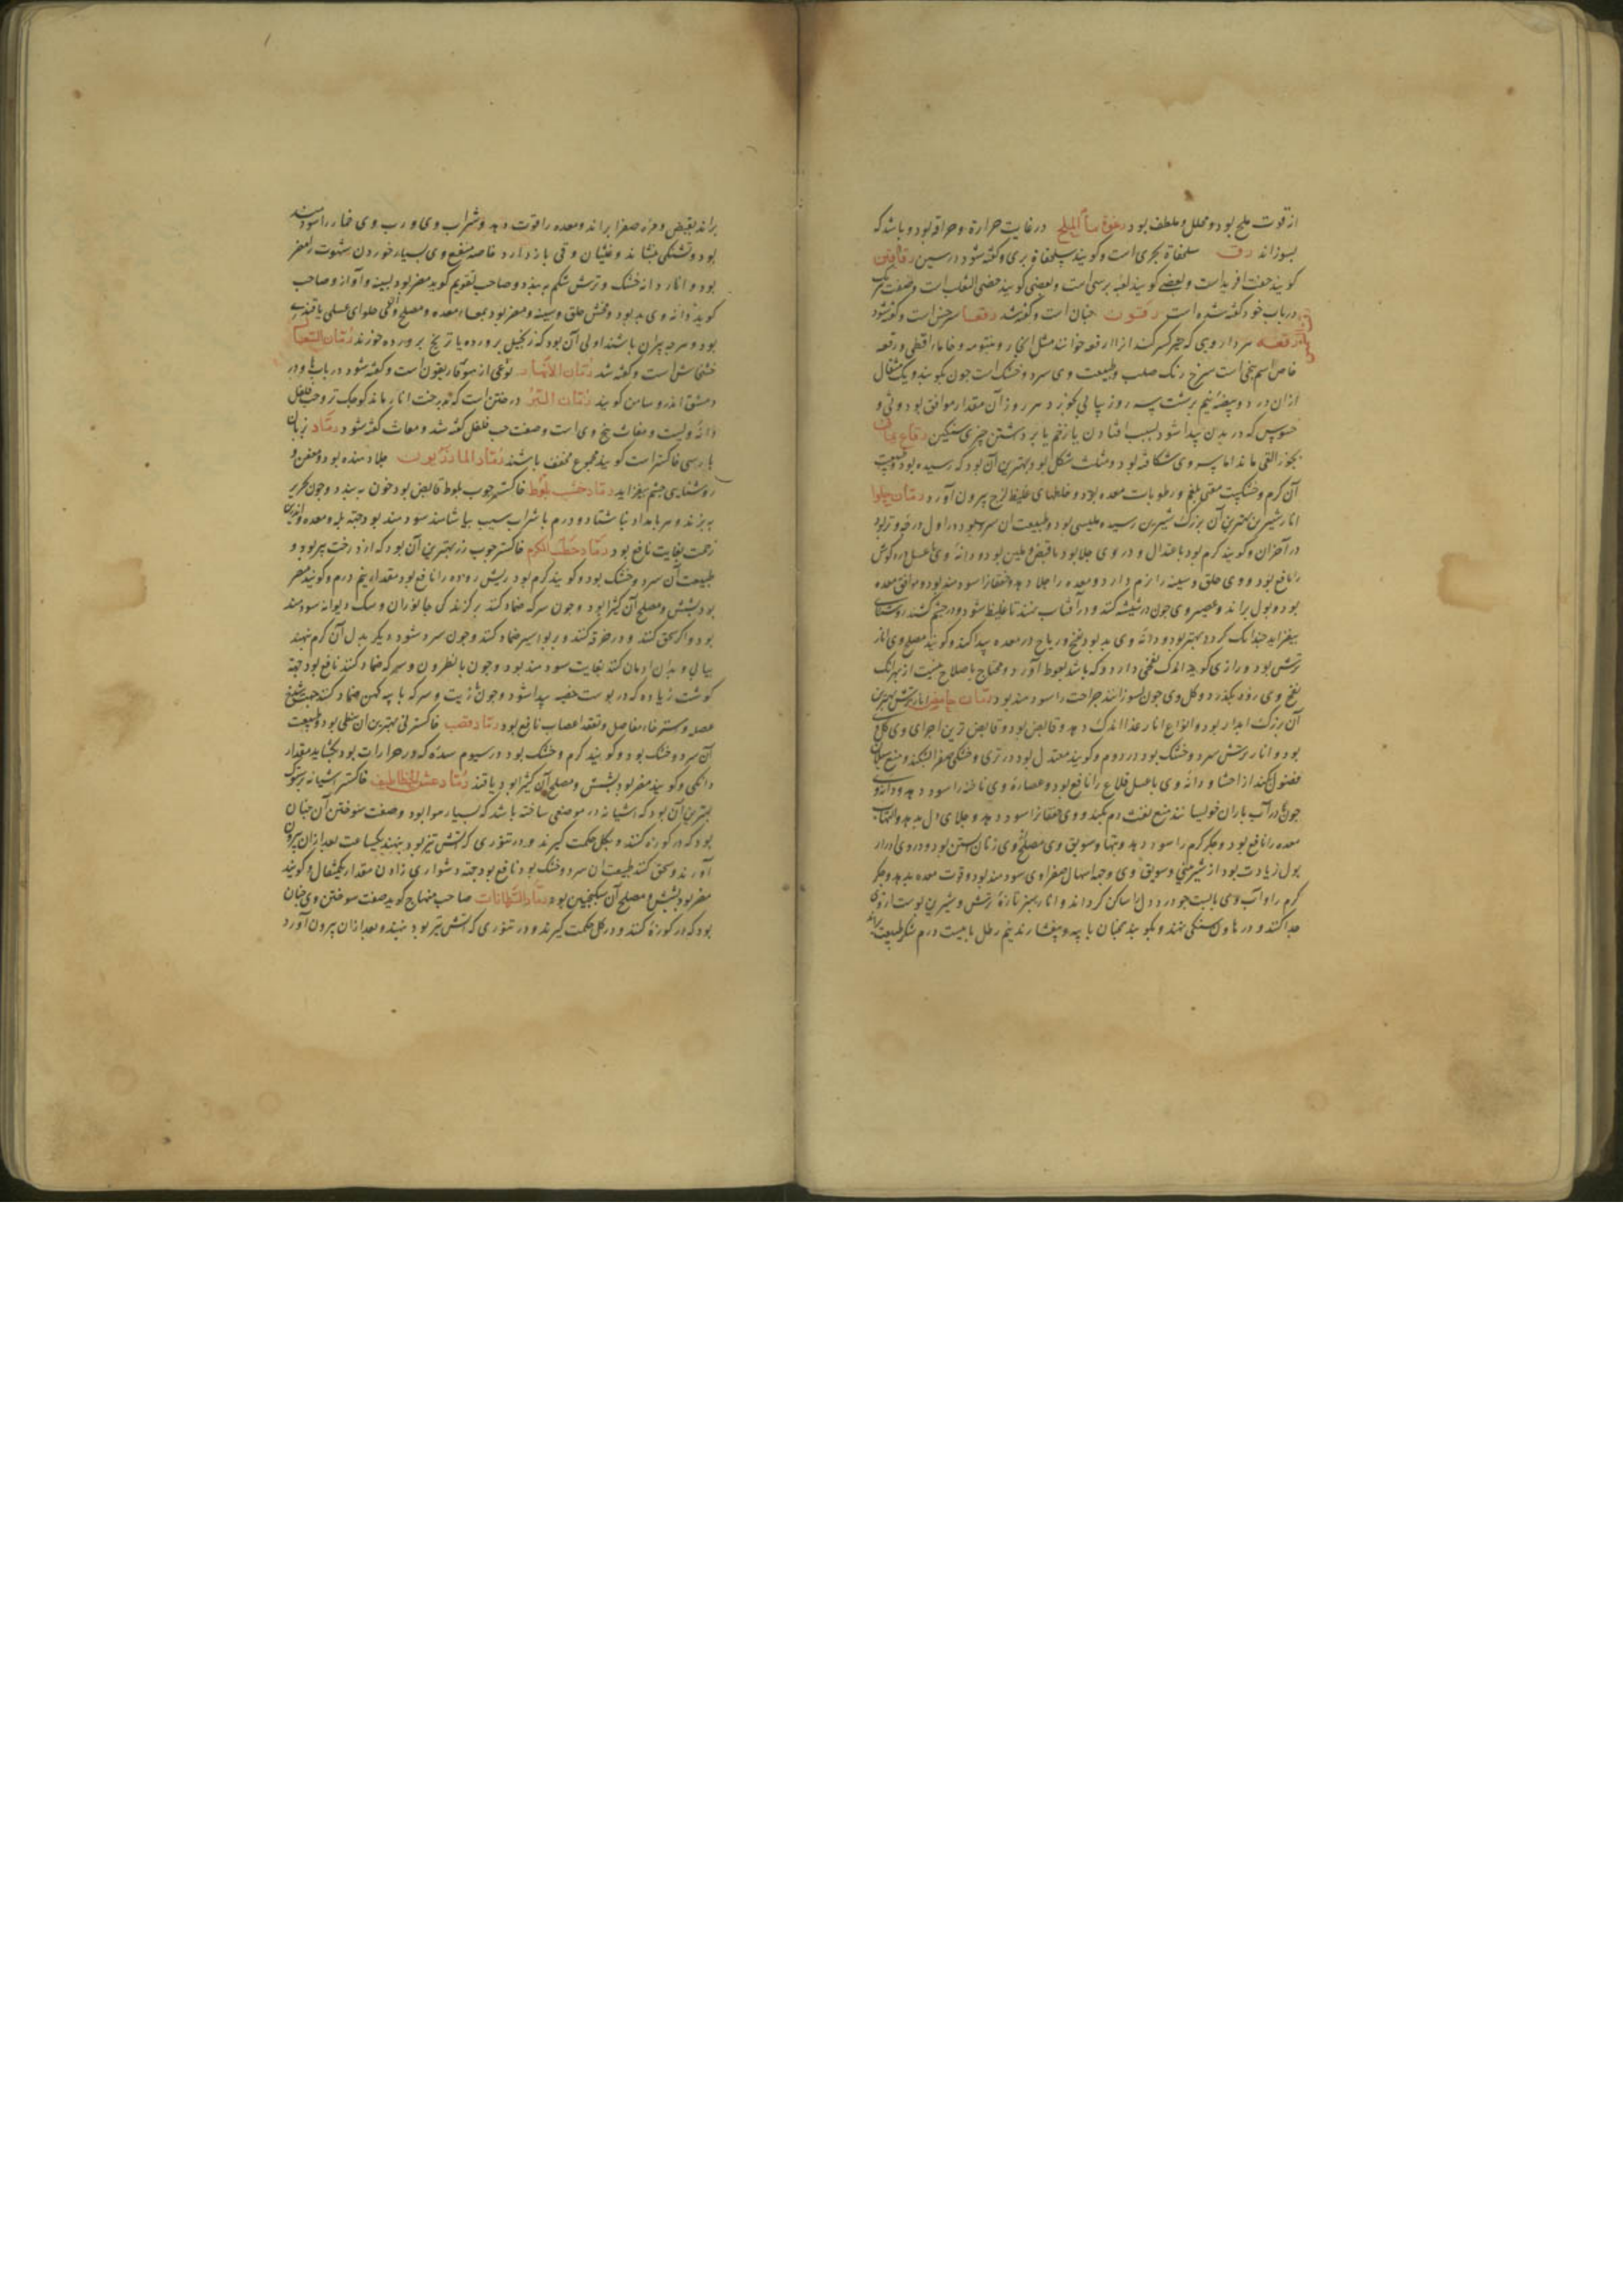 از قوت ملح بود و محلل و ملطف بود رغوة ماء الملح در غایت حرارة و حراقه بود و باشد که
بسوزاند رق سلحفاة بحری است و گویند سلحفاة بری و گفته شود در سین رقاقس
گویند جفت افرید است و بعضی گویند لعبه بربری است و بعضی گویند خصی الثعلب است و صفت هریک
در باب خود گفته شده است رقون حنان است و گفته شد رقعا سرخس است و گفته شود
رقعه هر داروی که جبر کسر کند از ارقعه خوانند مثل انجبار و مثل ورقعه
خاص اسم بیخی است سرخ رنگ صلب و طبیعت وی سرد و خشک است چون بکوبند و یک مثقال
از آن در دو بیضه نیم برشت سه روز پیاپی بخورد هر روز آن مقدار موافق بود وثی و
که در بدن پیدا شود بسبب افتادن یا زخم یا برداشتن چیزی سنگین رقاع
بجوز القی ماند اما پسر وی شکافته بود و مثلث شکل بود و بهترین آن بود که رسیده بود و طبیعت
آن گرم و خشکست مقی بلغم و رطوبات معده بود و خلطهای غلیظ لزج بیرون آورد رمان حلوا
انار شیرین بهترین آن بزرگ شیرین رسیده ملیسی بود و طبیعت آن سرد بود در اول درجه و تر بود
در آخر آن و گویند گرم بود باعتدال و در وی جلا بود با قبض و ملین بود و دانه وی با عسل درد گوش
را نافع بود و وی حلق و سینه را نرم دارد و معده را جلا دهد و خفقانرا سودمند بود و موافق معده
بود و بول براند و عصیر وی چون در شیشه کنند و در آفتاب نهند تا غلیظ شود و در چشم کشند روشنائی
بیفزاید چندانک کرد و بهتر بود و دانه وی بد بود نفخ و ریاح در معده پیدا کند و گویند مصلح وی انار
ترش بود و رازی گوید اندک نفخی دارد و که باشد نعوظ آورد و محتاج باصلاح نیست از بهر آنک
نفخ وی زود بگذرد و گل وی چون بسوزانند جراحت را سودمند بود رمان حامض انار ترش بهترین
آن بزرگ آبدار بود و انواع انار غذا اندک دهد و قابض بود و قابض ترین اجزای وی گل
بود و انار ترش سرد و خشک بود در دوم و گویند معتدل بود در تری و خشکی صفرا بشکند و منع سیلان
فضول بکند از احشا و دانه وی با عسل قلاع را نافع بود و عصاره وی ناخنه را سود دهد و دانه وی
چون در آب باران خویسانند منع نفث دم بکند و وی خفقانرا سود دهد و جلای دل بدهد و التهاب
معده را نافع بود و جگر گرم را سود دهد و تبها و سویق وی مصلح وی زنان آبستن بود و در وی ادرار
بول زیادت بود از شیرینی و سویق وی وجه اسهال صفراوی سودمند بود و قوت معده بدهد و جگر
گرم را و آب وی باالبت جو درد دل را ساکن گرداند و انار سبز تازه ترش و شیرین پوست از وی
جدا کنند و در هاون سنگی نهند و بکوبند همچنان با پیه و بیفشارند نیم رطل با بیست درم شکر طبیعت براند
براند بقبض و مره صفرا براند و معده را قوت دهد و شراب وی و رب وی خمار را سودمند
بود و تشنگی بنشاند و غثیان و قی باز دارد خاصه منعنع وی بسیار خوردن شهوت را مضر
بود و انار دانه خشک و ترش شکم ببندد و صاحب تقویم گوید مضر بود بسینه و آواز و صاحب
گوید دانه وی بد بود و مخش حلق و سینه و مضر بود بمعا و معده و مصلح وی حلوای عسلی یا قندی
بود و هرچه پیران باشند اولی آن بود که زنجبیل پرورده یا ترنج پرورده خورند رمان السعال
خشخاش است و گفته شد رمان الانهار نوعی از هوفاریقون است و گفته شود در باب ها و در
دمشق اندروسامن گویند رمان البر درختی است که بدرخت انار ماند کوچک تر و حب فلفل
دانه ویست و مغاث بیخ وی است و صفت حب فلفل گفته شد و مغاث گفته شود رماد بزبان
پارسی خاکستر است گویند مجموع مجفف باشند رماد المازریون جلا دهنده بود و معفن و
روشنایی چشم بیفزاید رماد خشب بلوط خاکستر چوب بلوط قابض بود خون ببندد و چون بحریر
ببیزند و هر بامداد ناشتا دو درم با شراب سیب بیاشامند سودمند بود جهة بله و معده و این
زحمت بغایت نافع بود رماد حطب الکرم خاکستر چوب رز بهترین آن بود که از درخت پیر بود و
طبیعت آن سرد و خشک بود و گویند گرم بود ریش روده را نافع بود مقدار نیم درم و گویند مضر
بود بشش و مصلح آن کثیرا بود و چون با سرکه ضماد کنند بر گزندگی جانوران و سگ دیوانه سودمند
بود و اگر سحق کنند و در خرقه کنند و بر بواسیر ضماد کنند و چون سرد شود دیگر بدل آن گرم نهند
بیاپی و بدان ادمان کنند بغایت سودمند بود و چون با نطرون و سرکه ضماد کنند نافع بود جهة
گوشت زیاده که در پوست خصیه پیدا شود و چون با زیت و سرکه یا پیه کهن ضماد کنند جهت شدخ
عضله و استرخاء مفاصل و تعقد اعصاب نافع بود رماد قصب خاکستر نی بهترین آن نبطی بود و طبیعت
آن سرد و خشک بود و گویند گرم و خشک بود در سیوم سده که در مرارات بود بگشاید مقدار
دانگی و گویند مضر بود بشش و مصلح آن کثیرا بود یا قند رماد عش الخطاطیف خاکستر آشیانه پرستوک
بهترین آن بود که آشیانه در موضعی ساخته باشد که بسیار هوا بود و صفت سوختن آن چنان
بود که در کوزه کنند و بگل حکمت گیرند و در تنوری که آتش تیز بود بنهند یکساعت بعد از آن بیرون
آورند و سحق کنند طبیعت آن سرد و خشک بود نافع بود جهة دشواری زادن مقدار یکمثقال و گویند
مضر بود بشش و مصلح آن سکنجبین بود رماد السرطانات صاحب منهاج گوید صفت سوختن وی چنان
بود که در کوزه کنند و در گل حکمت گیرند و در تنوری که آتش تیز بود بنهند و بعد از آن بیرون آورد